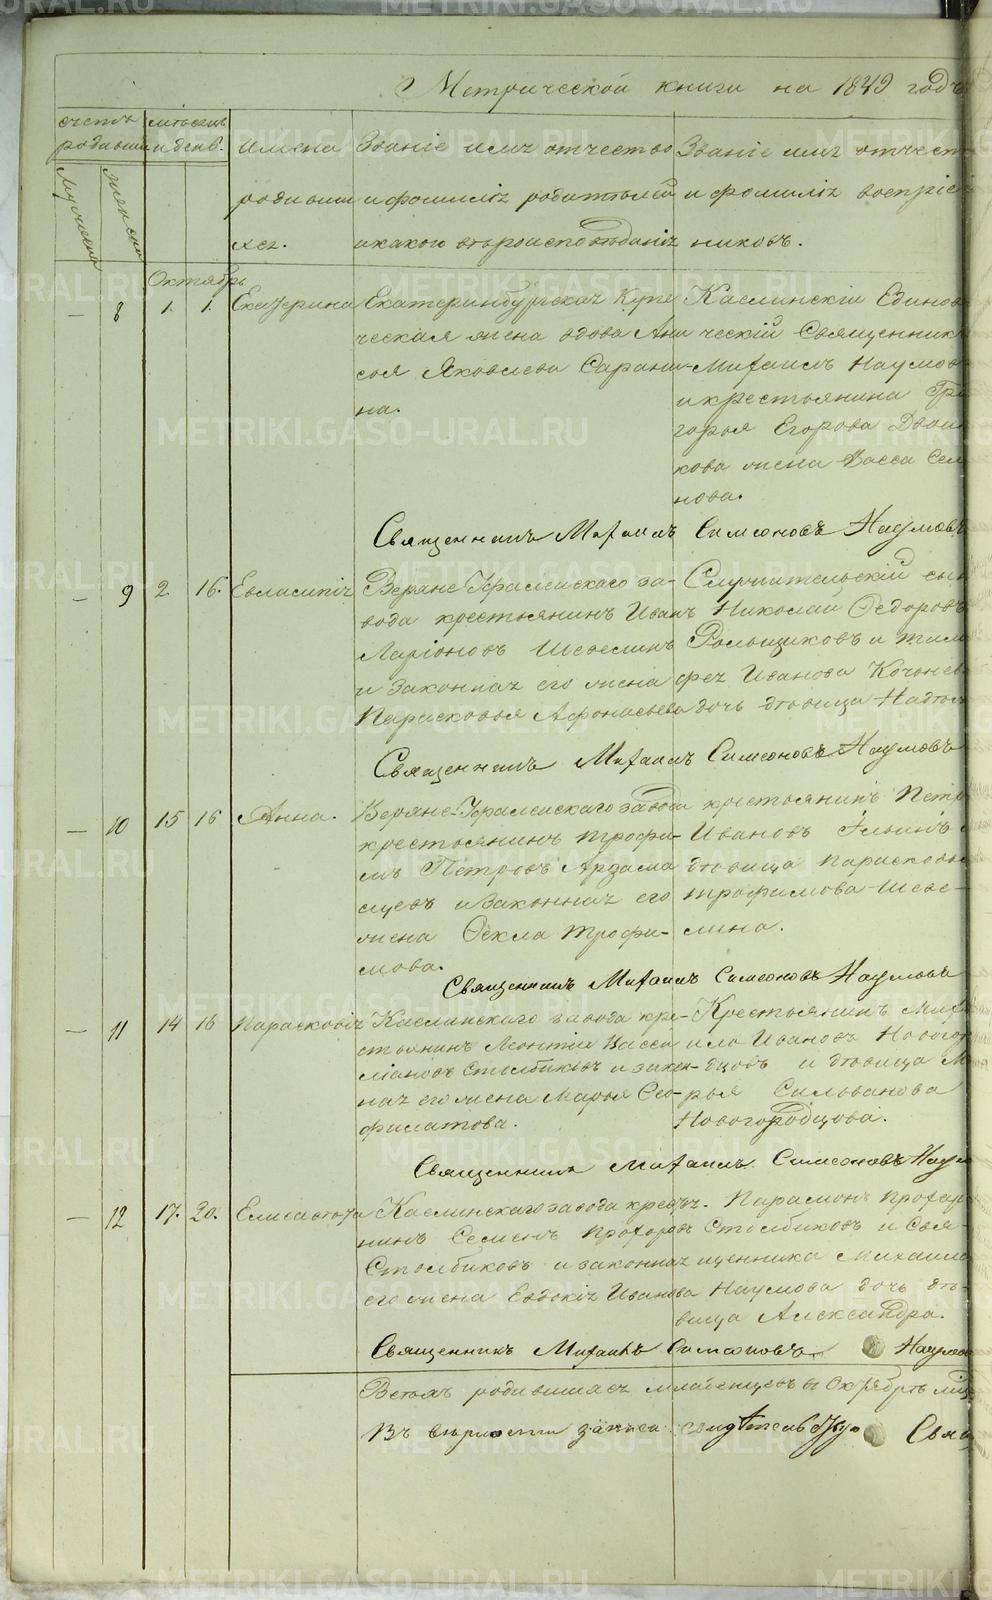 METRIKI.GASO-URAL.RU
Метрической книги на 1849 годъ
счетъ родивши
мѣсяцъ и день.
Мужеска
женска
имена родивши хся.
Званіе имя отчество и фамилія родителей и какого вѣроисповѣданія
Званіе имя отчест и фамилія воспріе никовъ.
Октябрь
— 8 1. 1. Екатерина
Екатеринбургская Купе
ческая жена вдова Ани
сья Яковлева Сарани
на.
Каслинскій Единов
ческій Священникъ
Михаилъ Наумов
и крестьянина Гри
горья Егорова Двой
кова жена Васса Сем
нова.
Священникъ Михаилъ Симеоновъ Наумовъ
— 9 2 16. Евлампія
Верхне Уфалейскаго за-
вода крестьянинъ Иванъ
Ларіоновъ Шевелинъ
и законная его жена
Парасковья Афонасьева
Служительскій сын
Николай Ѳедоровъ
Рольщиковъ и тимо
фея Иванова Кочнев
дочь дѣвица
Священникъ Михаилъ Симеоновъ Наумовъ
— 10 15 16 Анна.
Верхне Уфалейскаго завода
крестьянинъ трофи-
мъ Петровъ Арзама
сцевъ и законная его
жена Ѳекла трофи-
мова.
крестьянинъ Петр
Ивановъ Ильинъ
дѣвица парасковья
трофимова Шеве-
лина.
Священникъ Михаилъ Симеоновъ Наумовъ
— 11 14 16 Парасковія
Каслинскаго завода кре-
стьянинъ Леонтій Васси
ліановъ Столбиковъ и закон-
ная его жена Марья Ѳео-
филатова.
Крестьянинъ Миха
ило Ивановъ Новогор
дцовъ и дѣвица Ма
рья Силованова
Новогородцова.
Священникъ Михаилъ Симеоновъ Наум
— 12 17. 20. Елисавета
Каслинскаго завода кресть
нинъ Семенъ Прохоровъ
Столбиковъ и законная
его жена Евдокія Иванова
Парамонъ Прохор
Столбиковъ и Свя-
щенника Михаила
Наумова дочь дѣ-
вица Александра.
Священникъ Михаилъ Симеоновъ Наумов
Всѣхъ родившихся младенцевъ въ Октябрѣ мѣц
Въ вѣрности записи свидѣтельствую Свящ